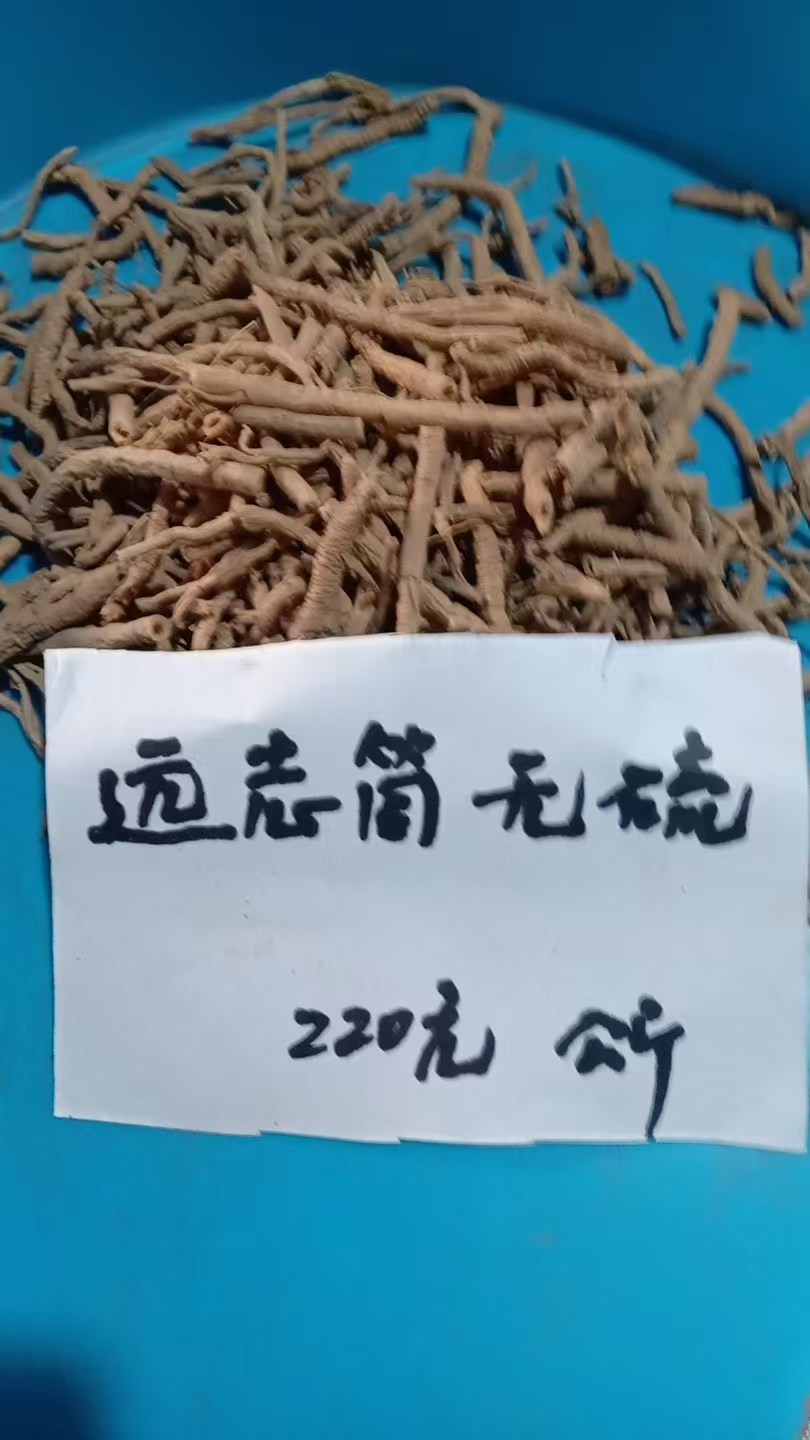 远志筒无硫
220元 公斤